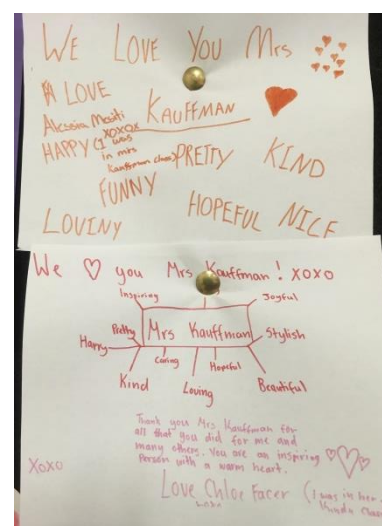 WE LOVE YOU Mrs
A LOVE
KAUFFMAN
Alessia
XOXOX
HAPPY (I was
in mrs
Kauffman class)
PRETTY
KIND
FUNNY
HOPEFUL NICE
LOVINY
We you Mrs Kauffman! XOXO
Inspiring
Joyful
Pretty
Mrs Kauffman
Stylish
Happy
Caring
Hopeful
Kind
Loving
Beautiful
Thank you Mrs Kauffman for
all that you did for me and
many others. You are an inspiring
Person with a warm heart.
XOXO
Love Chloe Facer (I was in her
xoxo